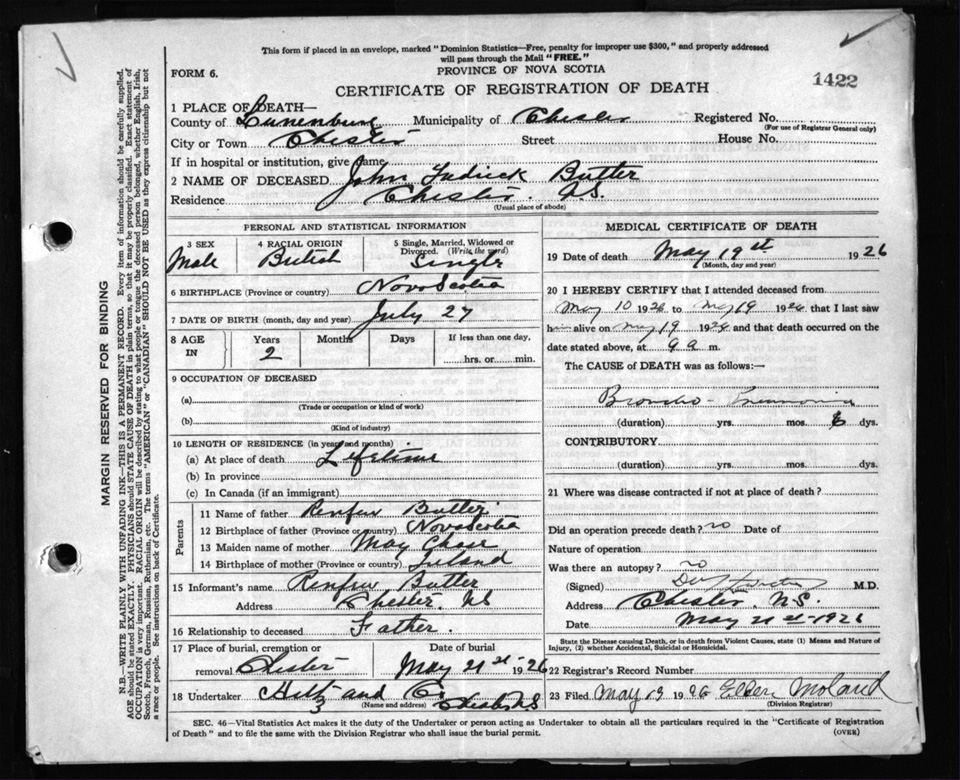 This form if placed in an envelope, marked "Dominion Statistics—Free, penalty for improper use $300," and properly addressed
will pass through the Mail "FREE."
FORM 6.
PROVINCE OF NOVA SCOTIA
1422
CERTIFICATE OF REGISTRATION OF DEATH
1 PLACE OF DEATH—
County of Lunenburg Municipality of Chester Registered No.
(For use of Registrar General only)
City or Town Chester Street House No.
If in hospital or institution, give name
2 NAME OF DECEASED John Butler
Residence Chester N.S.
(Usual place of abode)
PERSONAL AND STATISTICAL INFORMATION
3 SEX 4 RACIAL ORIGIN 5 Single, Married, Widowed or
Divorced. (Write the word)
Male British Single
6 BIRTHPLACE (Province or country) Nova Scotia
7 DATE OF BIRTH (month, day and year) July 27
8 AGE IN Years Months Days If less than one day,
2 hrs. or min.
9 OCCUPATION OF DECEASED
(a)
(Trade or occupation or kind of work)
(b)
(Kind of industry)
10 LENGTH OF RESIDENCE (in years and months)
(a) At place of death Lifetime
(b) In province
(c) In Canada (if an immigrant)
Parents
11 Name of father Renfrew Butler
12 Birthplace of father (Province or country) Nova Scotia
13 Maiden name of mother May
14 Birthplace of mother (Province or country) Ireland
15 Informant's name Renfrew Butler
Address Chester, NS
16 Relationship to deceased Father.
17 Place of burial, cremation or Date of burial
removal Chester May 21st 1926
18 Undertaker and Co. Chester NS
(Name and address)
MEDICAL CERTIFICATE OF DEATH
19 Date of death May 19th 1926
(Month, day and year)
20 I HEREBY CERTIFY that I attended deceased from
May 10 1926 to May 19 1926 that I last saw
him alive on May 19 1926 and that death occurred on
the date stated above, at 9 a m.
The CAUSE of DEATH was as follows:—
Broncho-Pneumonia
(duration) yrs. mos. dys.
CONTRIBUTORY
(duration) yrs. mos. dys.
21 Where was disease contracted if not at place of death?
Did an operation precede death? no Date of
Nature of operation
Was there an autopsy? no
(Signed) M.D.
Address Chester N.S.
Date May 21st-1926
State the Disease causing Death, or in death from Violent Causes, state (1) Means and Nature of
Injury, (2) whether Accidental, Suicidal or Homicidal.
22 Registrar's Record Number
23 Filed May 19 1926
(Division Registrar)
SEC. 46—Vital Statistics Act makes it the duty of the Undertaker or person acting as Undertaker to obtain all the particulars required in the "Certificate of Registration
of Death" and to file the same with the Division Registrar who shall issue the burial permit.
(OVER)
MARGIN RESERVED FOR BINDING
N.B.—WRITE PLAINLY WITH UNFADING INK—THIS IS A PERMANENT RECORD. Every item of information should be carefully supplied.
AGE should be stated EXACTLY. PHYSICIANS should STATE CAUSE OF DEATH in plain terms, so that it may be properly classified. Exact statement of
OCCUPATION is very important. RACIAL ORIGIN will be described by stating to what people or tongue the deceased person belonged, whether English, Irish,
Scotch, French, German, Russian, Ruthenian, etc. The terms "AMERICAN" or "CANADIAN" SHOULD NOT BE USED as they express citizenship but not
a race or people. See instructions on back of Certificate.